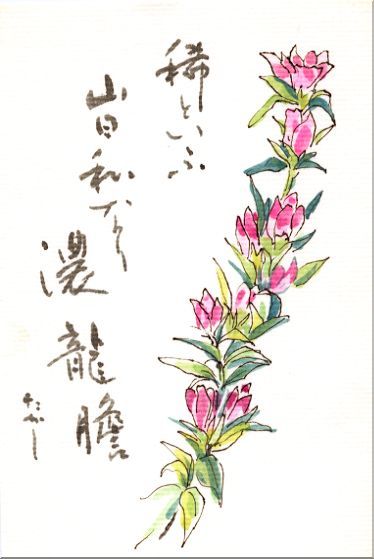 稀といふ
山日和なり
濃龍膽
たかし